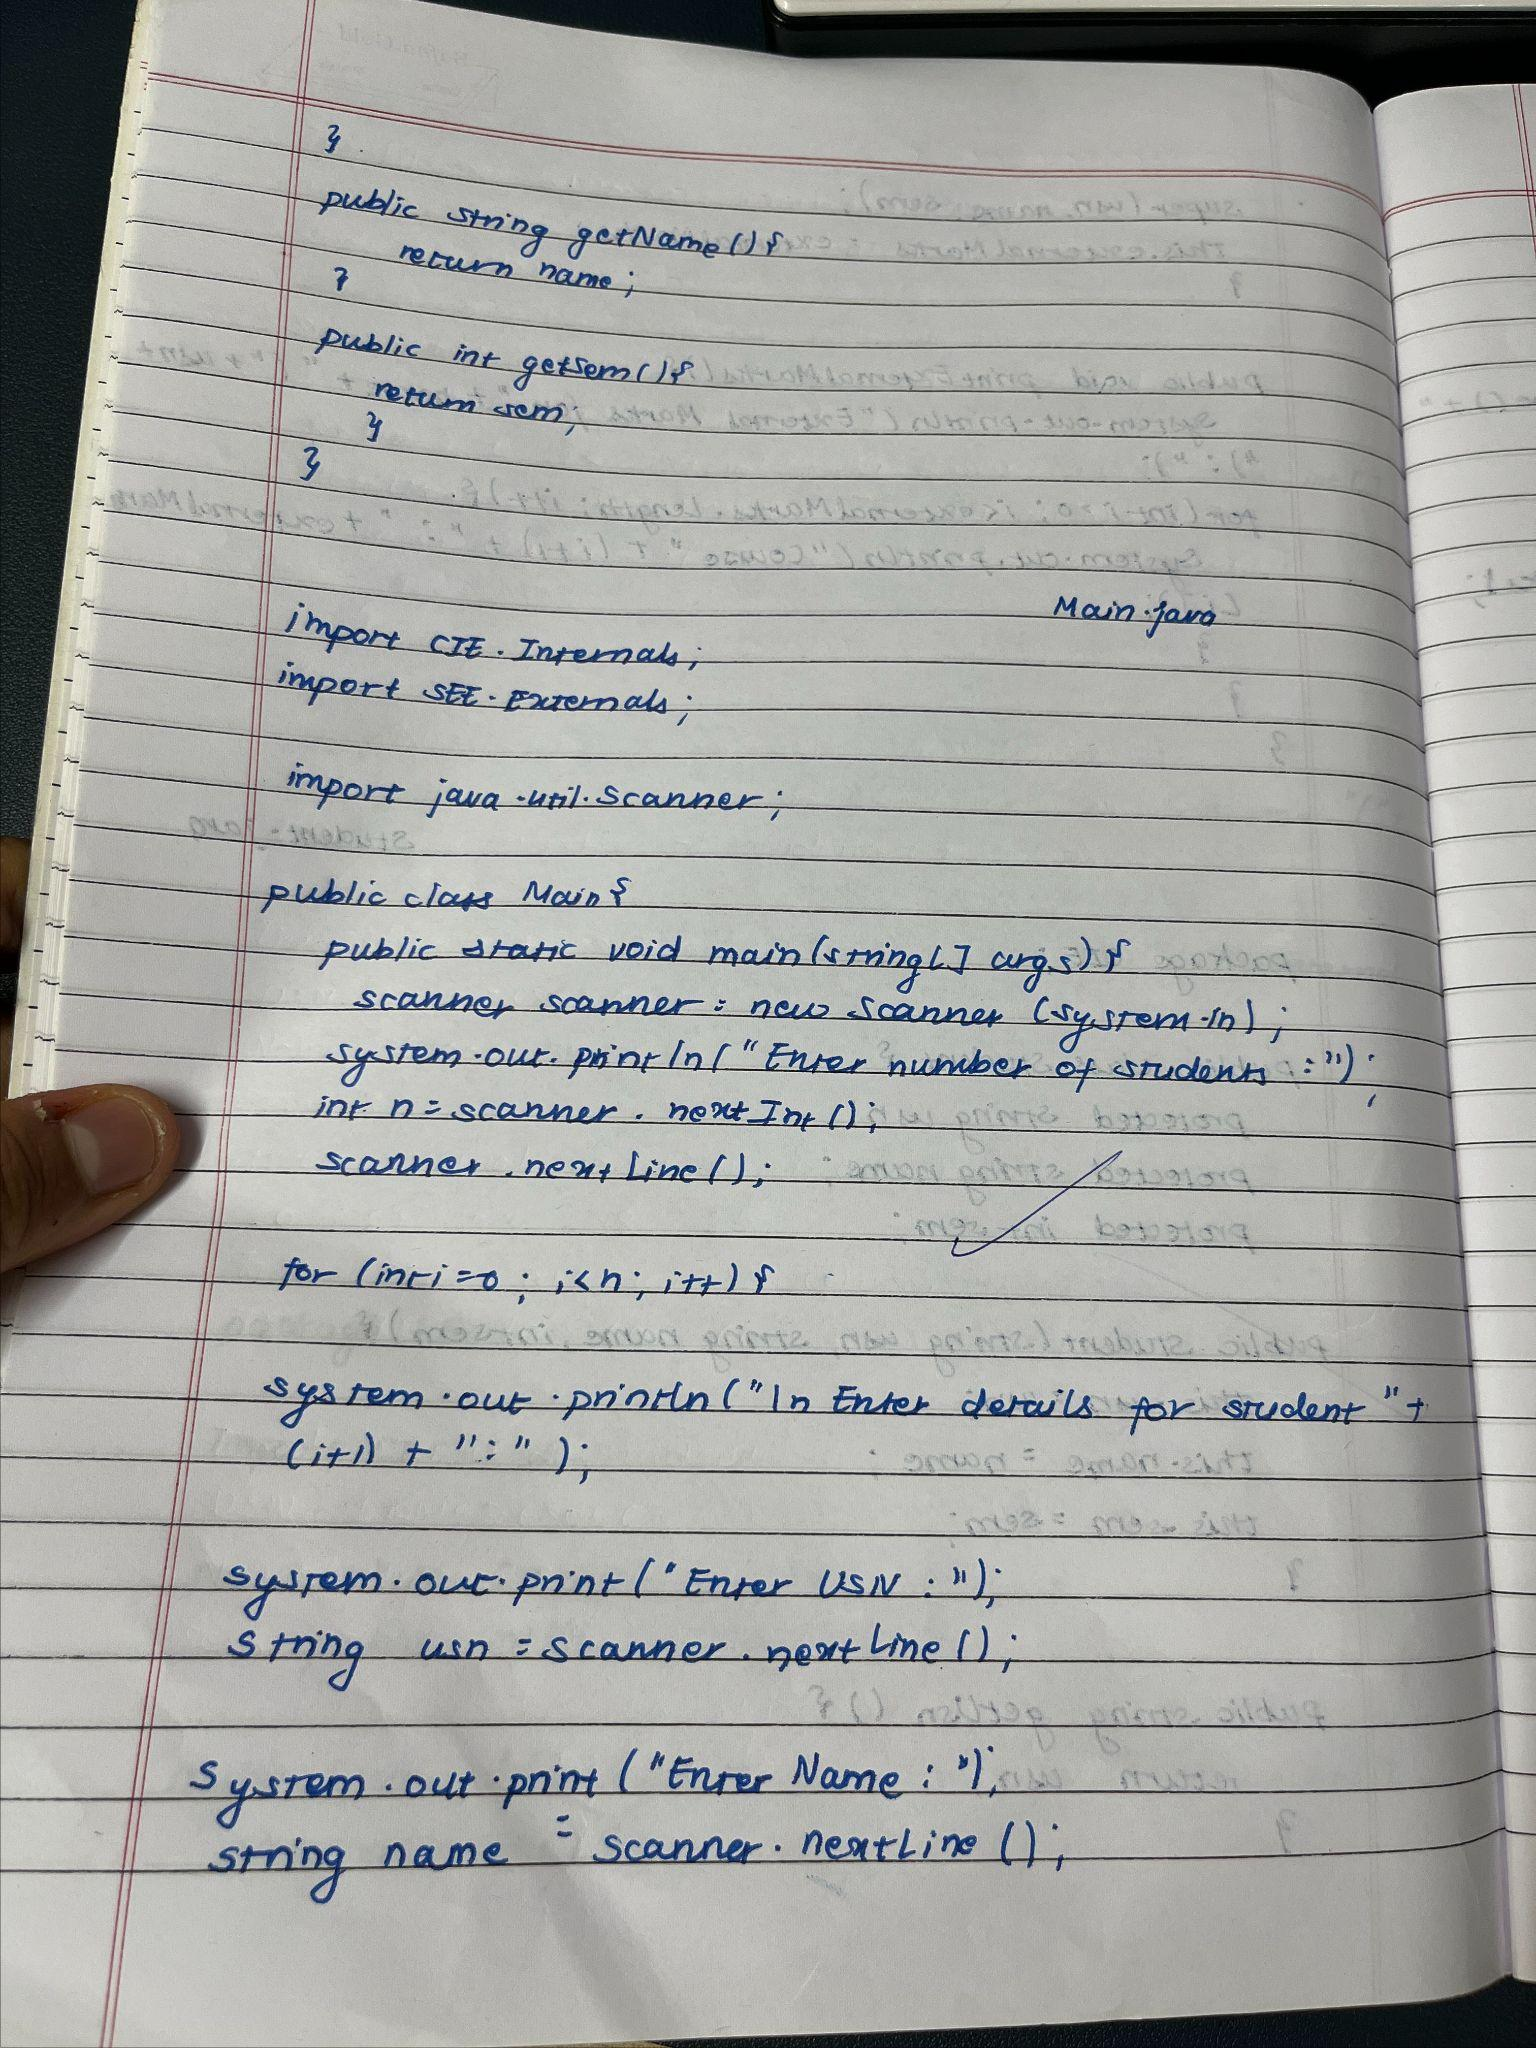 }
public string getName(){
return name;
}
public int getSem(){
return sem;
}
}
Main.java
import CIE.Internals;
import SEE.Externals;
import java.util.Scanner;
public class Main{
public static void main(string[] args){
scanner scanner = new Scanner (System.in);
system.out.println("Enter number of students :");
int n = scanner.nextInt();
scanner.nextLine();
for (int i=0; i<n; i++){
system.out.println("\n Enter details for student "+
(i+1) + ":" );
system.out.print("Enter USN : ");
string usn = scanner.nextLine();
System.out.print ("Enter Name : ");
string name = scanner.nextLine();